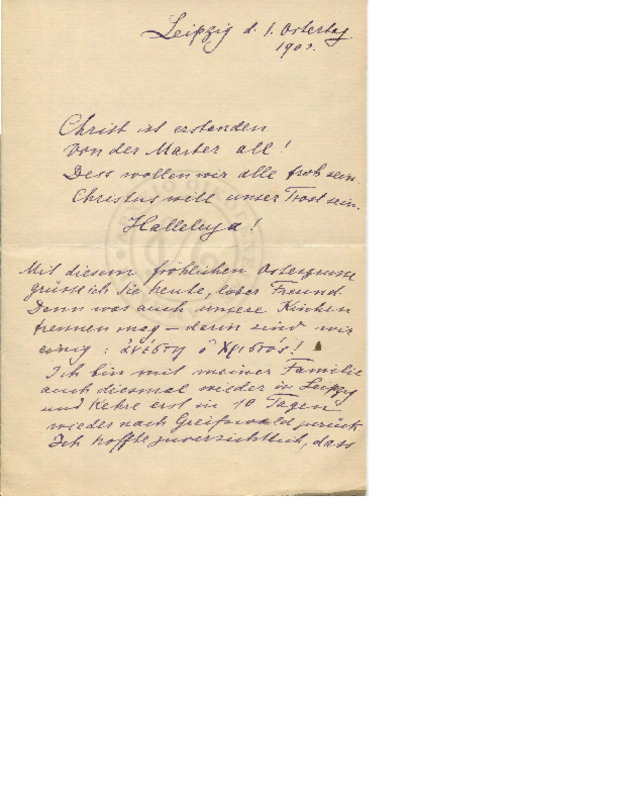 Leipzig d. 1. Ostertag
Christ ist erstanden
Von der Marter all!
Dess wollen wir alle froh sein.
Christus will unser Trost sein.
Halleluja!
Mit diesem fröhlichen Ostergrusse
grüsse ich Sie heute, lieber Freund.
Denn was auch unsere Kirchen
trennen mag – darin sind wir
einig: Ἀνέστη ὁ Χριστός!
Ich bin mit meiner Familie
auch diesmal wieder in Leipzig
und kehre erst in 10 Tagen
wieder nach Greifswald zurück.
Ich hoffte zuversichtlich, dass